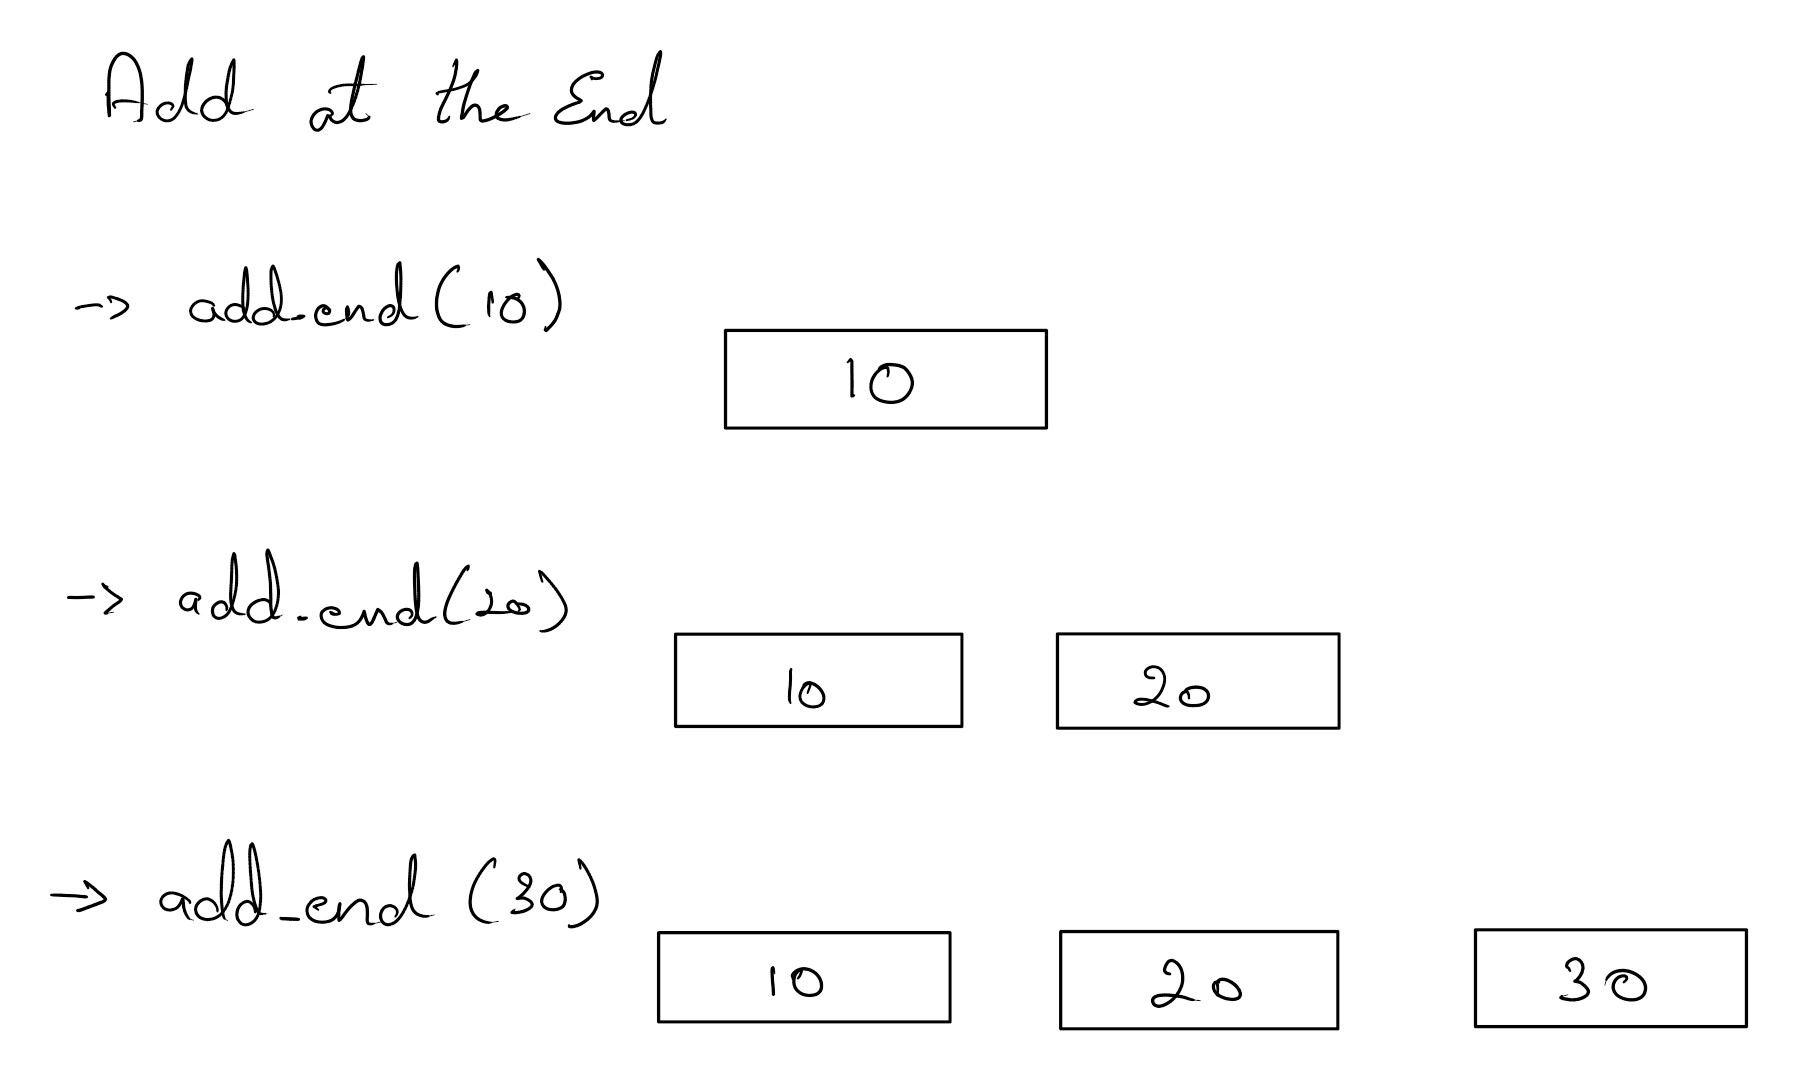 Add at the End
-> add_end(10)
10
-> add_end(20)
10 20
-> add_end (30)
10 20 30